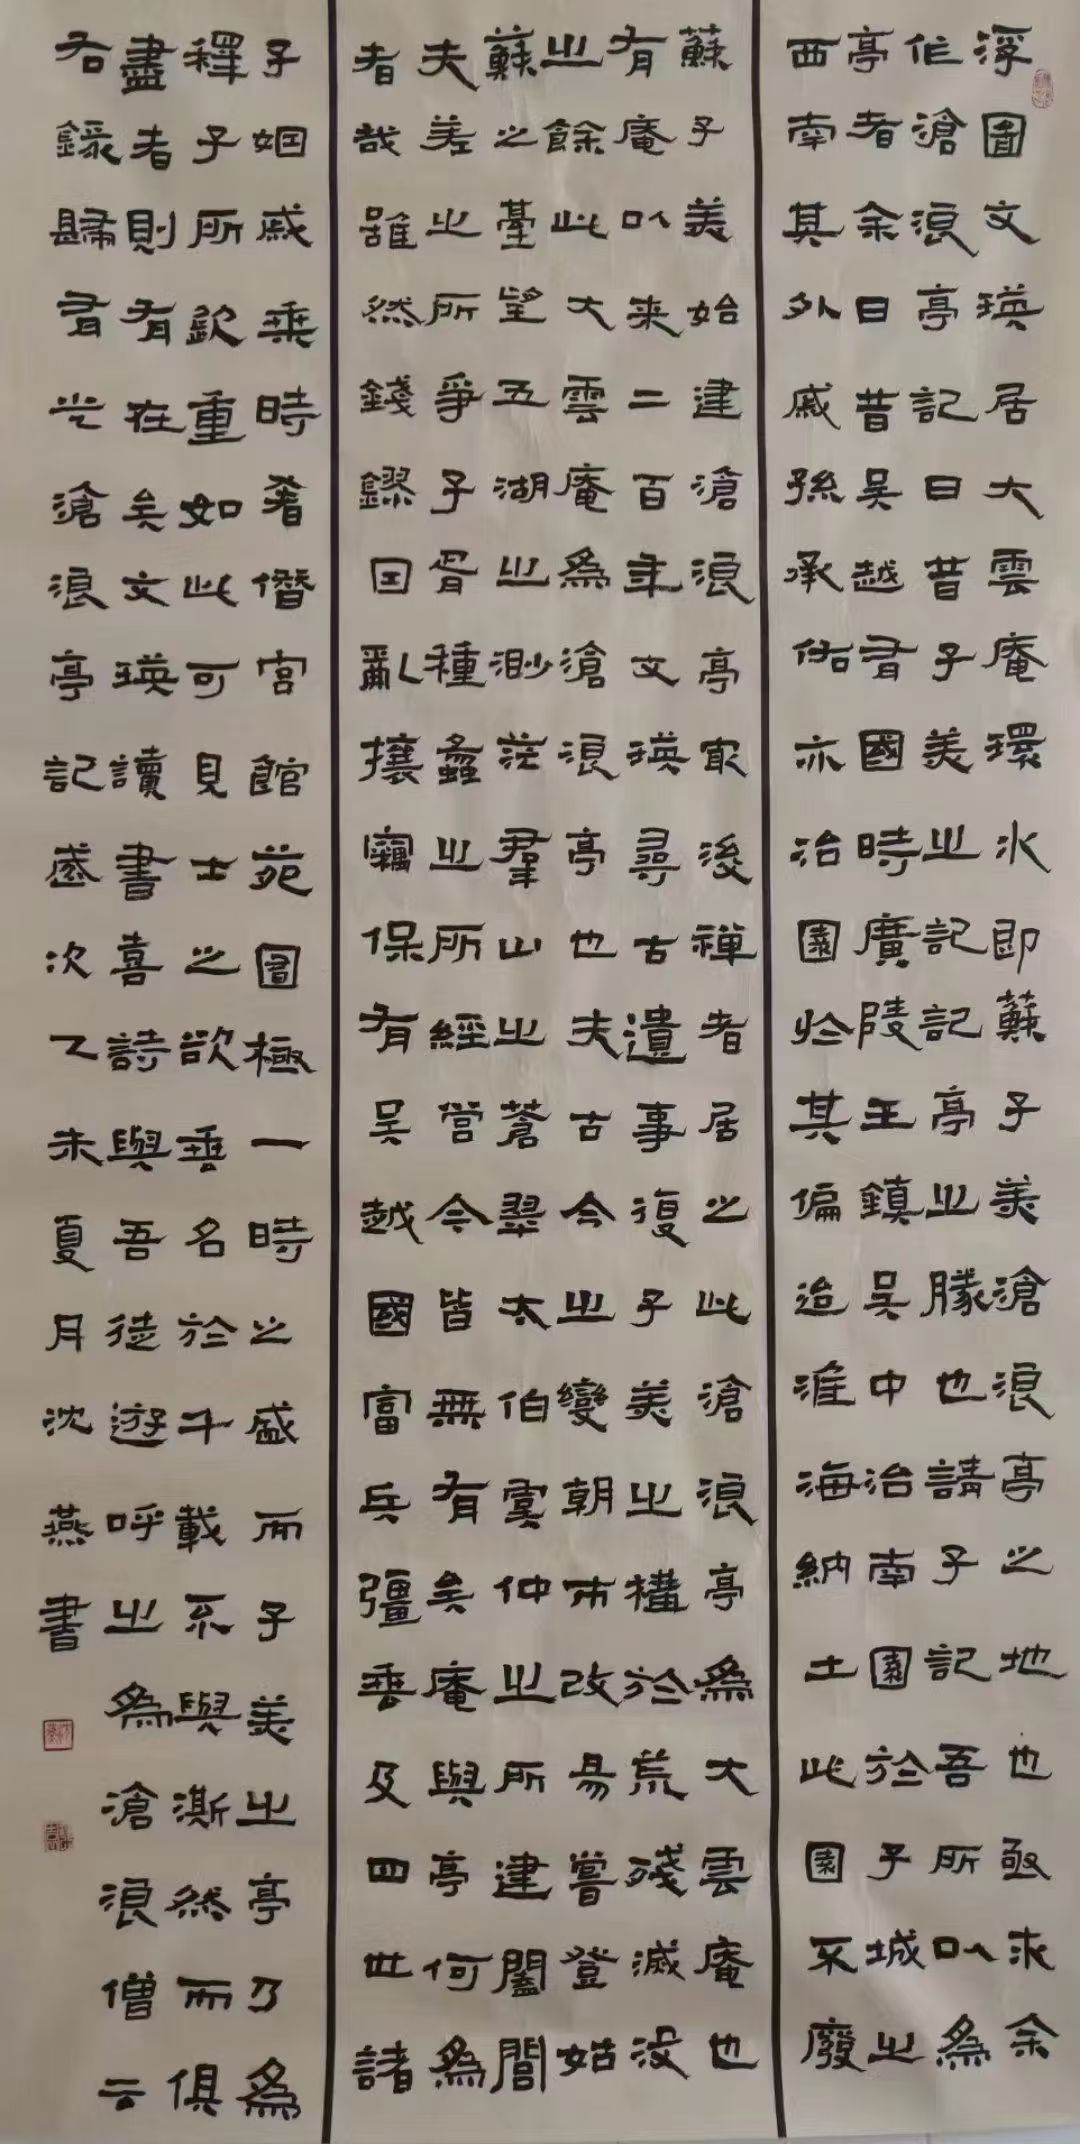 浮圖文瑛居大雲庵環水即蘇子美滄浪亭之地也亟求余
作滄浪亭記曰昔子美之記記亭之勝也請子記吾所以為
亭者余曰昔吳越有國時廣陵王鎮吳中治南園於子城之
西南其外戚孫承佑亦治園於其偏迨淮海納土此園不廢
蘇子美始建滄浪亭最後禪者居之此滄浪亭為大雲庵也
有庵以来二百年文瑛尋古遺事復子美之構於荒殘滅沒
之餘此大雲庵為滄浪亭也夫古今之變朝市改易嘗登姑
蘇之臺望五湖之渺茫羣山之蒼翠太伯虞仲之所建闔閭
夫差之所爭子胥種蠡之所經營今皆無有矣庵與亭何為
者哉雖然錢鏐因亂攘竊保有吳越國富兵彊垂及四世諸
子姻戚乘時奢僭宮館苑囿極一時之盛而子美之亭乃為
釋子所欽重如此可見士之欲垂名於千載不與澌然而俱
盡者則有在矣文瑛讀書喜詩與吾徒遊呼之為滄浪僧云
右錄歸有光滄浪亭記歲次乙未夏月沈燕書